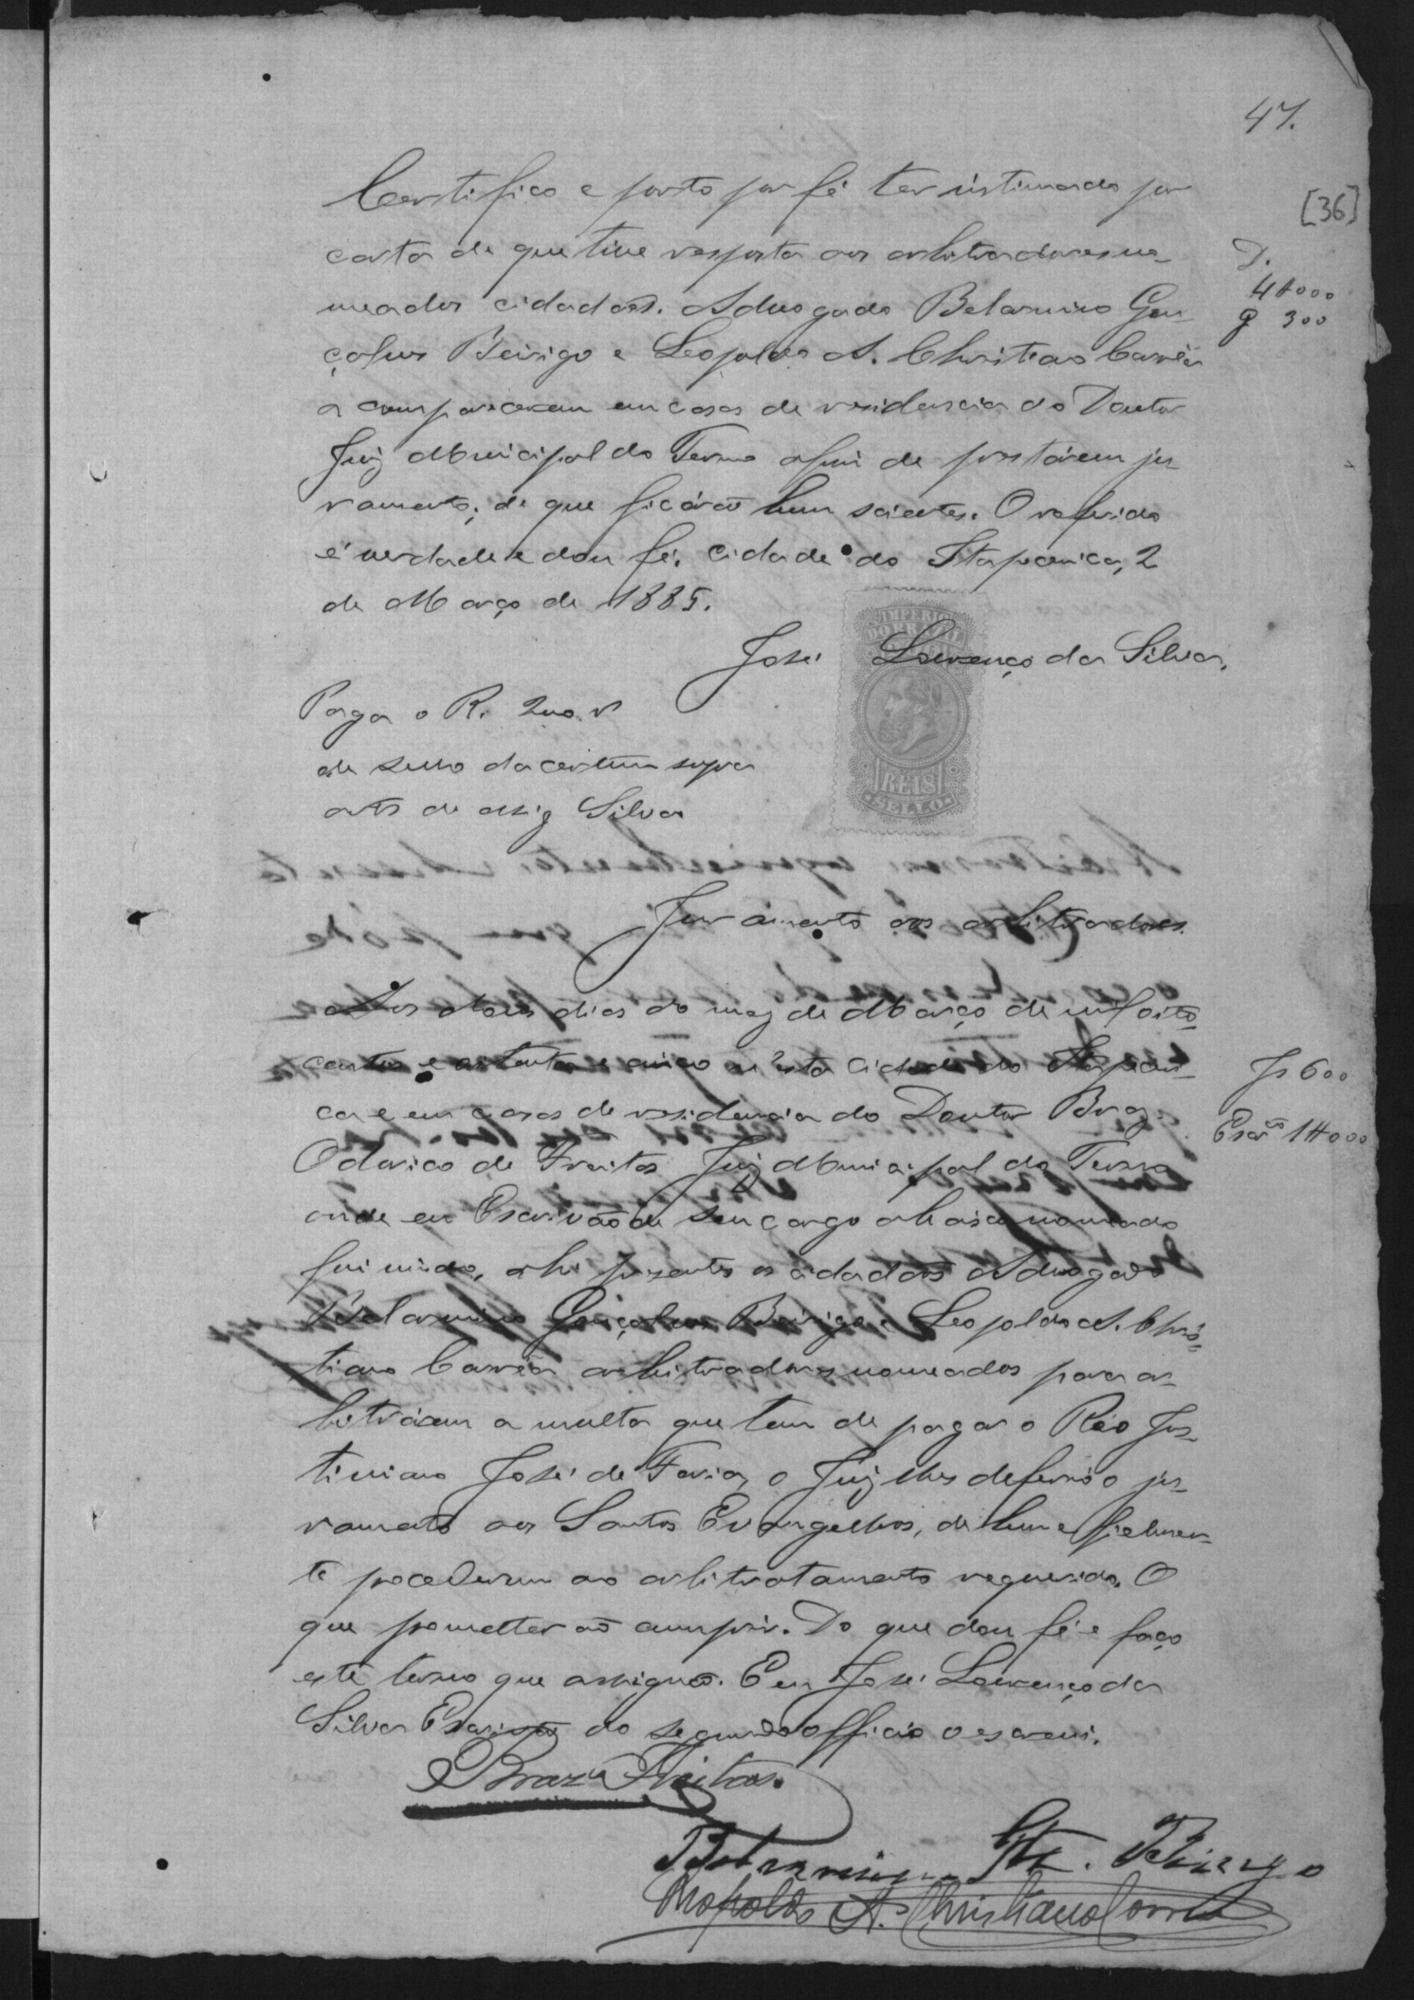 47.
[36]
Certifico e porto por fé ter intimado por
carta de que tive resposta aos arbitradores no-
meados cidadãos. Advogado Belarmino Gon-
çalves Beirigo e Leopoldo A. Christiano Corrêa
a comparecerem em casas de residencia do Doutor
Juiz Municipal do Termo afim de prestárem ju-
ramento; de que ficárão bem scientes. O referido
é verdade e dou fé. Cidade do Itapecerica, 2
de Março de 1885.
D.
4$000
300
José Lourenço da Silva.
IMPERIO
DO BRAZIL
REIS
SELLO
Paga o R. 200 rs
de sello da certidam supra
Silva
Juramento aos arbitradores
Aos dois dias do mez de Março de mil oito-
centos e oitenta e cinco n'esta Cidade do Itapeceri-
ca e em casas de residencia do Doutor Braz
Odorico de Freitas Juiz Municipal do Termo
onde eu Escrivão de seu cargo abaixo nomeado
fui vindo, ahi presentes os cidadãos Advogado
Belarmino Gonçalves Beirigo e Leopoldo A. Chris-
tiano Corrêa arbitradores nomeados para ar-
bitrárem a multa que tem de pagar o Réo Jus-
tiniano José de Faria, o Juiz lhes deferio o ju-
ramento aos Santos Evangelhos, de bem e fielmen-
te procederem ao arbitratamento requerido. O
que prometterão cumprir. Do que dou fé e faço
este termo que assignão. Eu José Lourenço da
Silva Escrivão do segundo officio o escrevi.
Js 600
Escrm 1$000
Braz Freitas.
Belarmino Glz. Beirigo
Leopoldo A. Christiano Corrêa